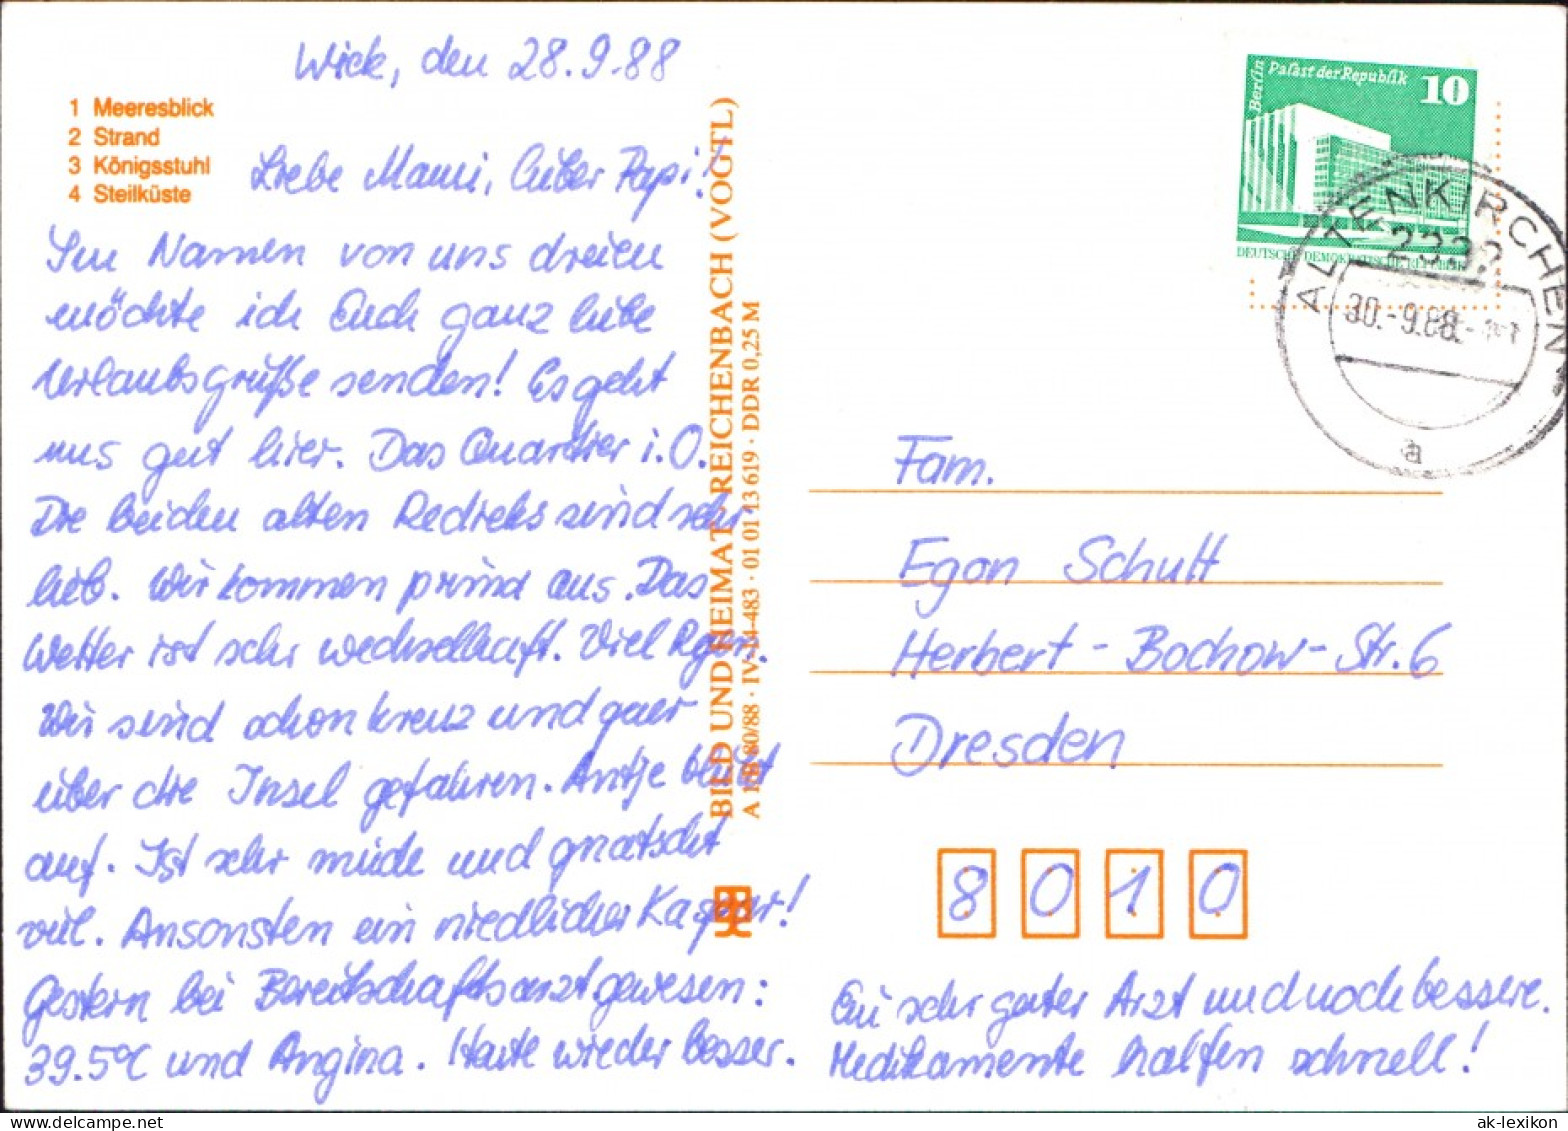 Wiek, den 28.9.88
1 Meeresblick
2 Strand
3 Königsstuhl
4 Steilküste
Liebe Mami, lieber Papi!
Im Namen von uns dreien
möchte ich Euch ganz liebe
Urlaubsgrüße senden! Es geht
uns gut hier. Das Quartier i.O.
Die beiden alten sind sehr
lieb. Wir kommen prima aus. Das
Wetter ist sehr wechselhaft. Viel Regen.
Wir sind schon kreuz und quer
über die Insel gefahren. Antje blüht
auf. Ist sehr müde und gnatscht
viel. Ansonsten ein niedlicher Kasper!
Gestern bei Bereitschaftsarzt gewesen:
39.5°C und Angina. Heute wieder besser.
Ein sehr guter Arzt und noch bessere.
Medikamente halfen schnell!
BILD UND HEIMAT REICHENBACH (VOGTL)
A 1/B 80/88 · IV-14-483 · 01 01 13 619 · DDR 0,25 M
Berlin
Palast der Republik
10
DEUTSCHE DEMOKRATISCHE REPUBLIK
ALTENKIRCHEN
2332
30.-9.88.
a
Fam.
Egon Schutt
Herbert-Bochow-Str. 6
Dresden
8010
ak-lexikon